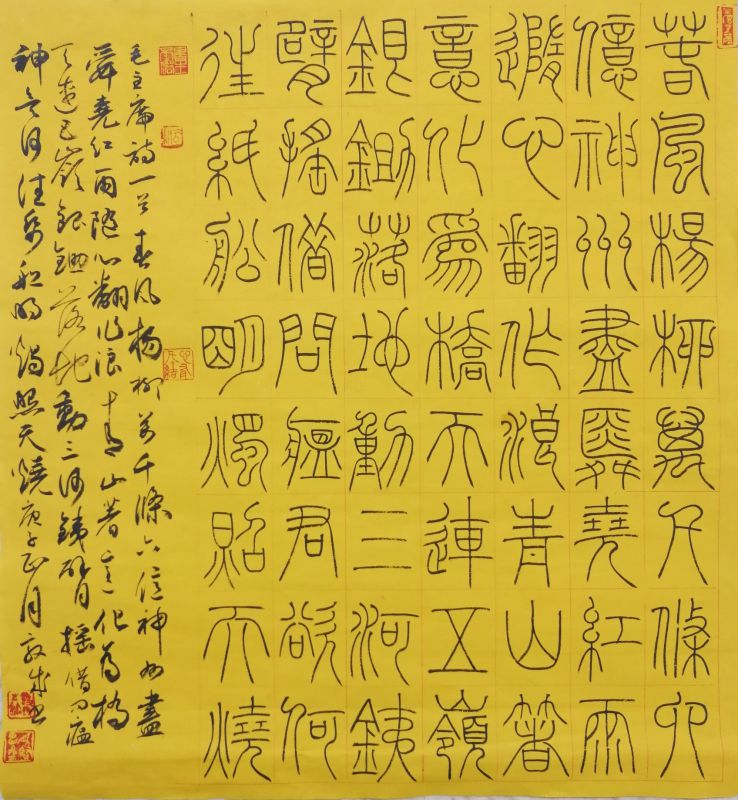 春風楊柳萬千條六
億神州盡舜堯紅雨
隨心翻作浪青山著
意化為橋天連五嶺
銀鋤落地動三河銕
臂搖借問瘟君欲何
往紙船明燭照天燒
毛主席詩一首春风楊柳萬千條六億神州盡
舜堯紅雨隨心翻作浪青山著意化為橋
天連五嶺銀鋤落地動三河銕臂搖借問瘟
神欲何往紙船明燭照天燒庚子正月